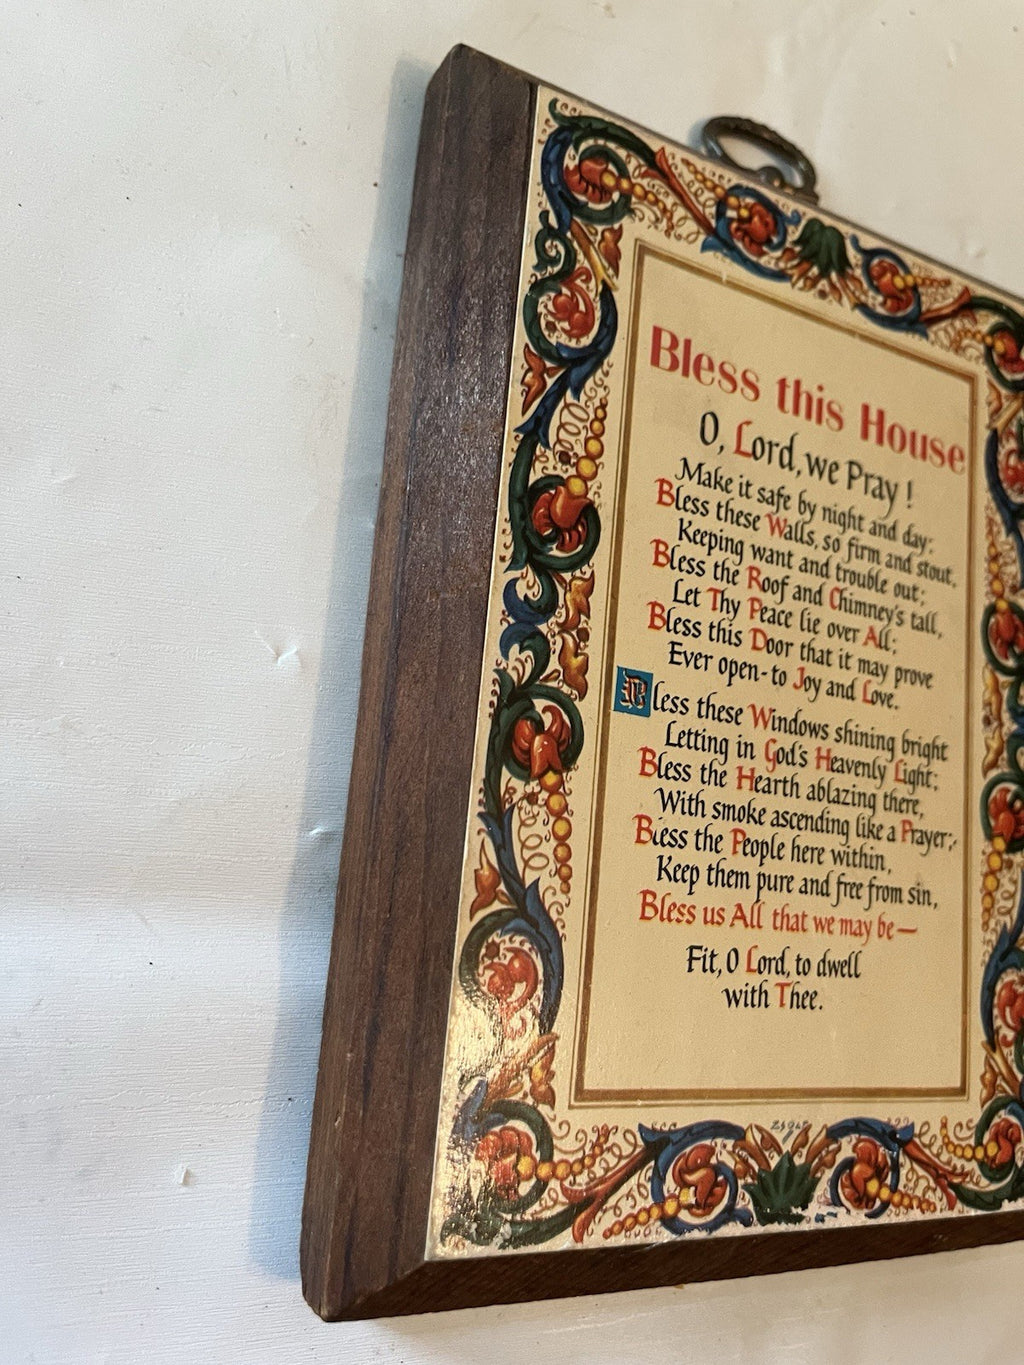 Bless this House
O, Lord, we Pray !
Make it safe by night and day:
Bless these Walls, so firm and stout,
Keeping want and trouble out:
Bless the Roof and Chimney's tall,
Let Thy Peace lie over All;
Bless this Door that it may prove
Ever open-to Joy and Love.
Bless these Windows shining bright
Letting in God's Heavenly Light;
Bless the Hearth ablazing there,
With smoke ascending like a Prayer;
Bless the People here within,
Keep them pure and free from sin,
Bless us All that we may be—
Fit, O Lord, to dwell
with Thee.